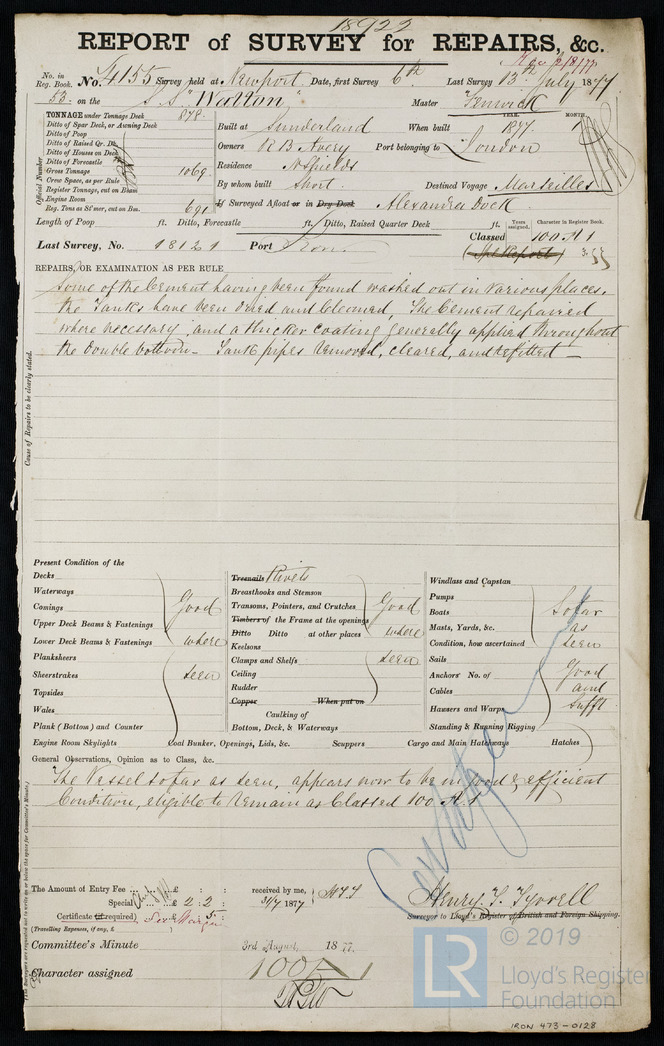 18922
REPORT of SURVEY for REPAIRS, &c.
No. in Reg. Book. No. 4155 Survey held at Newport Date, first Survey 6th Last Survey 13th July 1877
53 on the S.S. "Walton" Master Fenwick
TONNAGE under Tonnage Deck 878
Ditto of Spar Deck, or Awning Deck
Ditto of Poop
Ditto of Raised Qr. Dk.
Ditto of Houses on Deck
Ditto of Forecastle
Gross Tonnage 1069
Crew Space, as per Rule
Register Tonnage, cut on Beam
Engine Room
Reg. Tons as St'mer, cut on Bm. 691
Official Number
Built at Sunderland When built YEAR. 1877 MONTH. 7
Owners R B Avery Port belonging to London
Residence N Shields
By whom built Short Destined Voyage Marseilles
If Surveyed Afloat or in Dry Dock Alexandra Dock
Length of Poop ft. Ditto, Forecastle ft. Ditto, Raised Quarter Deck ft.
Years assigned. Character in Register Book.
Last Survey, No. 18121 Port Classed 100 A 1
(Spl Report)
REPAIRS, OR EXAMINATION AS PER RULE
Some of the Cement having been found washed out in various places,
the Tanks have been dried and cleaned, The Cement repaired
where necessary, and a thicker coating generally applied throughout
the double bottom - Tank pipes removed, cleared, and refitted -
Cause of Repairs to be clearly stated.
Present Condition of the
Decks
Waterways
Comings
Upper Deck Beams & Fastenings
Lower Deck Beams & Fastenings
Planksheers
Sheerstrakes
Topsides
Wales
Plank (Bottom) and Counter
Good
where
seen
Treenails Rivets
Breasthooks and Stemson
Transoms, Pointers, and Crutches
Timbers of the Frame at the openings
Ditto Ditto at other places
Keelsons
Clamps and Shelfs
Ceiling
Rudder
Copper When put on
Caulking of
Bottom, Deck, & Waterways
Good
where
seen
Windlass and Capstan
Pumps
Boats
Masts, Yards, &c.
Condition, how ascertained
Sails
Anchors No. of
Cables
Hawsers and Warps
Standing & Running Rigging
So far
as
seen
Good
and
sufft
Engine Room Skylights Coal Bunker, Openings, Lids, &c. Scuppers Cargo and Main Hatchways Hatches
General Observations, Opinion as to Class, &c.
The Vessel so far as seen, appears now to be in good & efficient
Condition, eligible to remain as Classed 100 A 1
The Amount of Entry Fee £ : : received by me,
Special £ 2 : 2 : 31/7 1877 HTS
Certificate (if required) : 5 :
(Travelling Expenses, if any, £
Henry T. Tyrrell
Surveyor to Lloyd's Register of British and Foreign Shipping.
Committee's Minute 3rd August, 1877.
Character assigned 100 A 1
© 2019
LR
Lloyd's Register
Foundation
IRON 473-0128